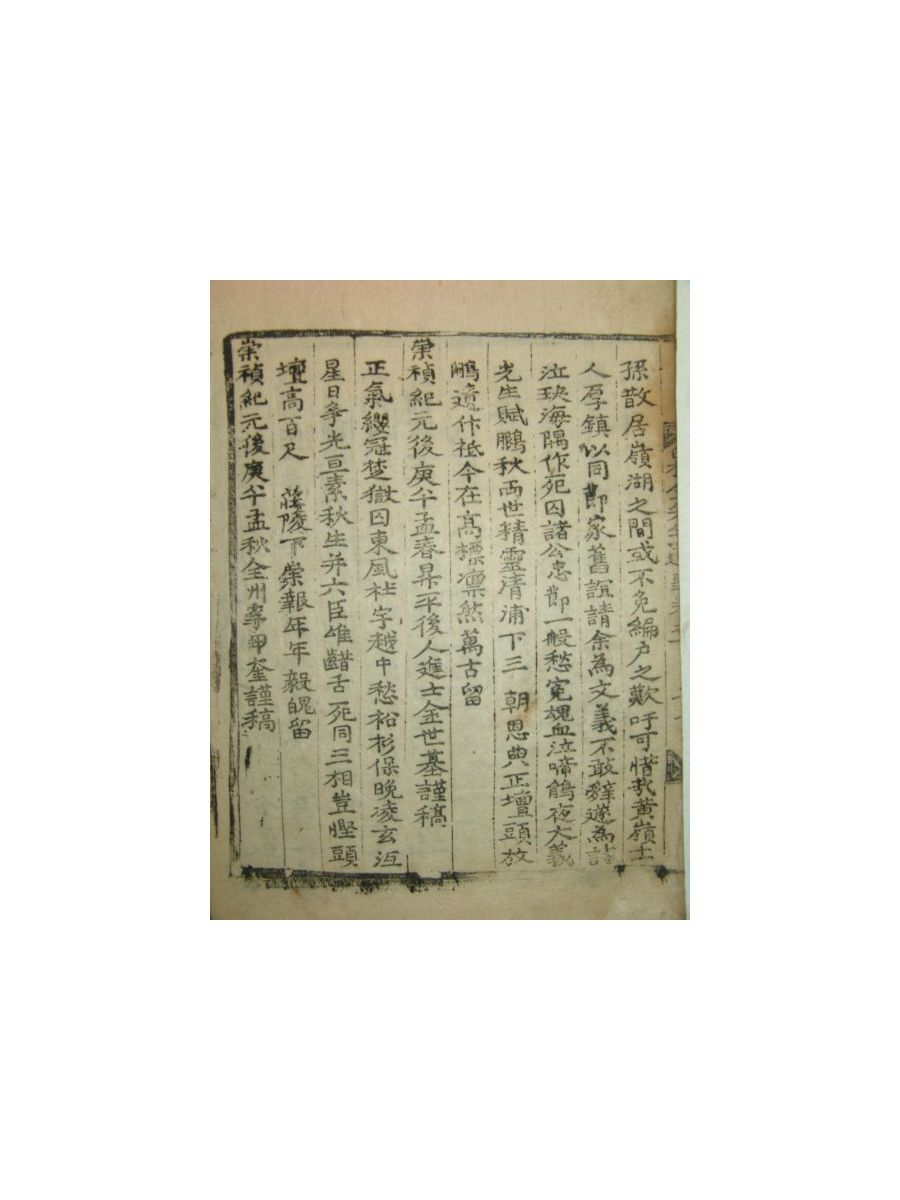 孫散居嶺湖之間或不免編户之歎吁可惜哉黃嶺士
人厚鎮以同節家舊誼請余為文義不敢辭遂為詩
泣玦海隅作死囚諸公忠節一般愁寃魂血泣啼鵑夜大義
光生賦鵬秋两世精靈清浦下三 朝恩典正壇頭放
鵬遺什祗今在高標凛然萬古留
崇禎紀元後庚午孟春昇平後人進士金世基謹稿
正氣纓冠楚獄囚東風杜宇越中愁裕杉保晚凌玄沍
星日爭光亘素秋生并六臣雄齰舌死同三相豈慳頭
壇高百尺 莊陵下崇報年年毅魄留
崇禎紀元後庚午孟秋全州李 奎謹稿